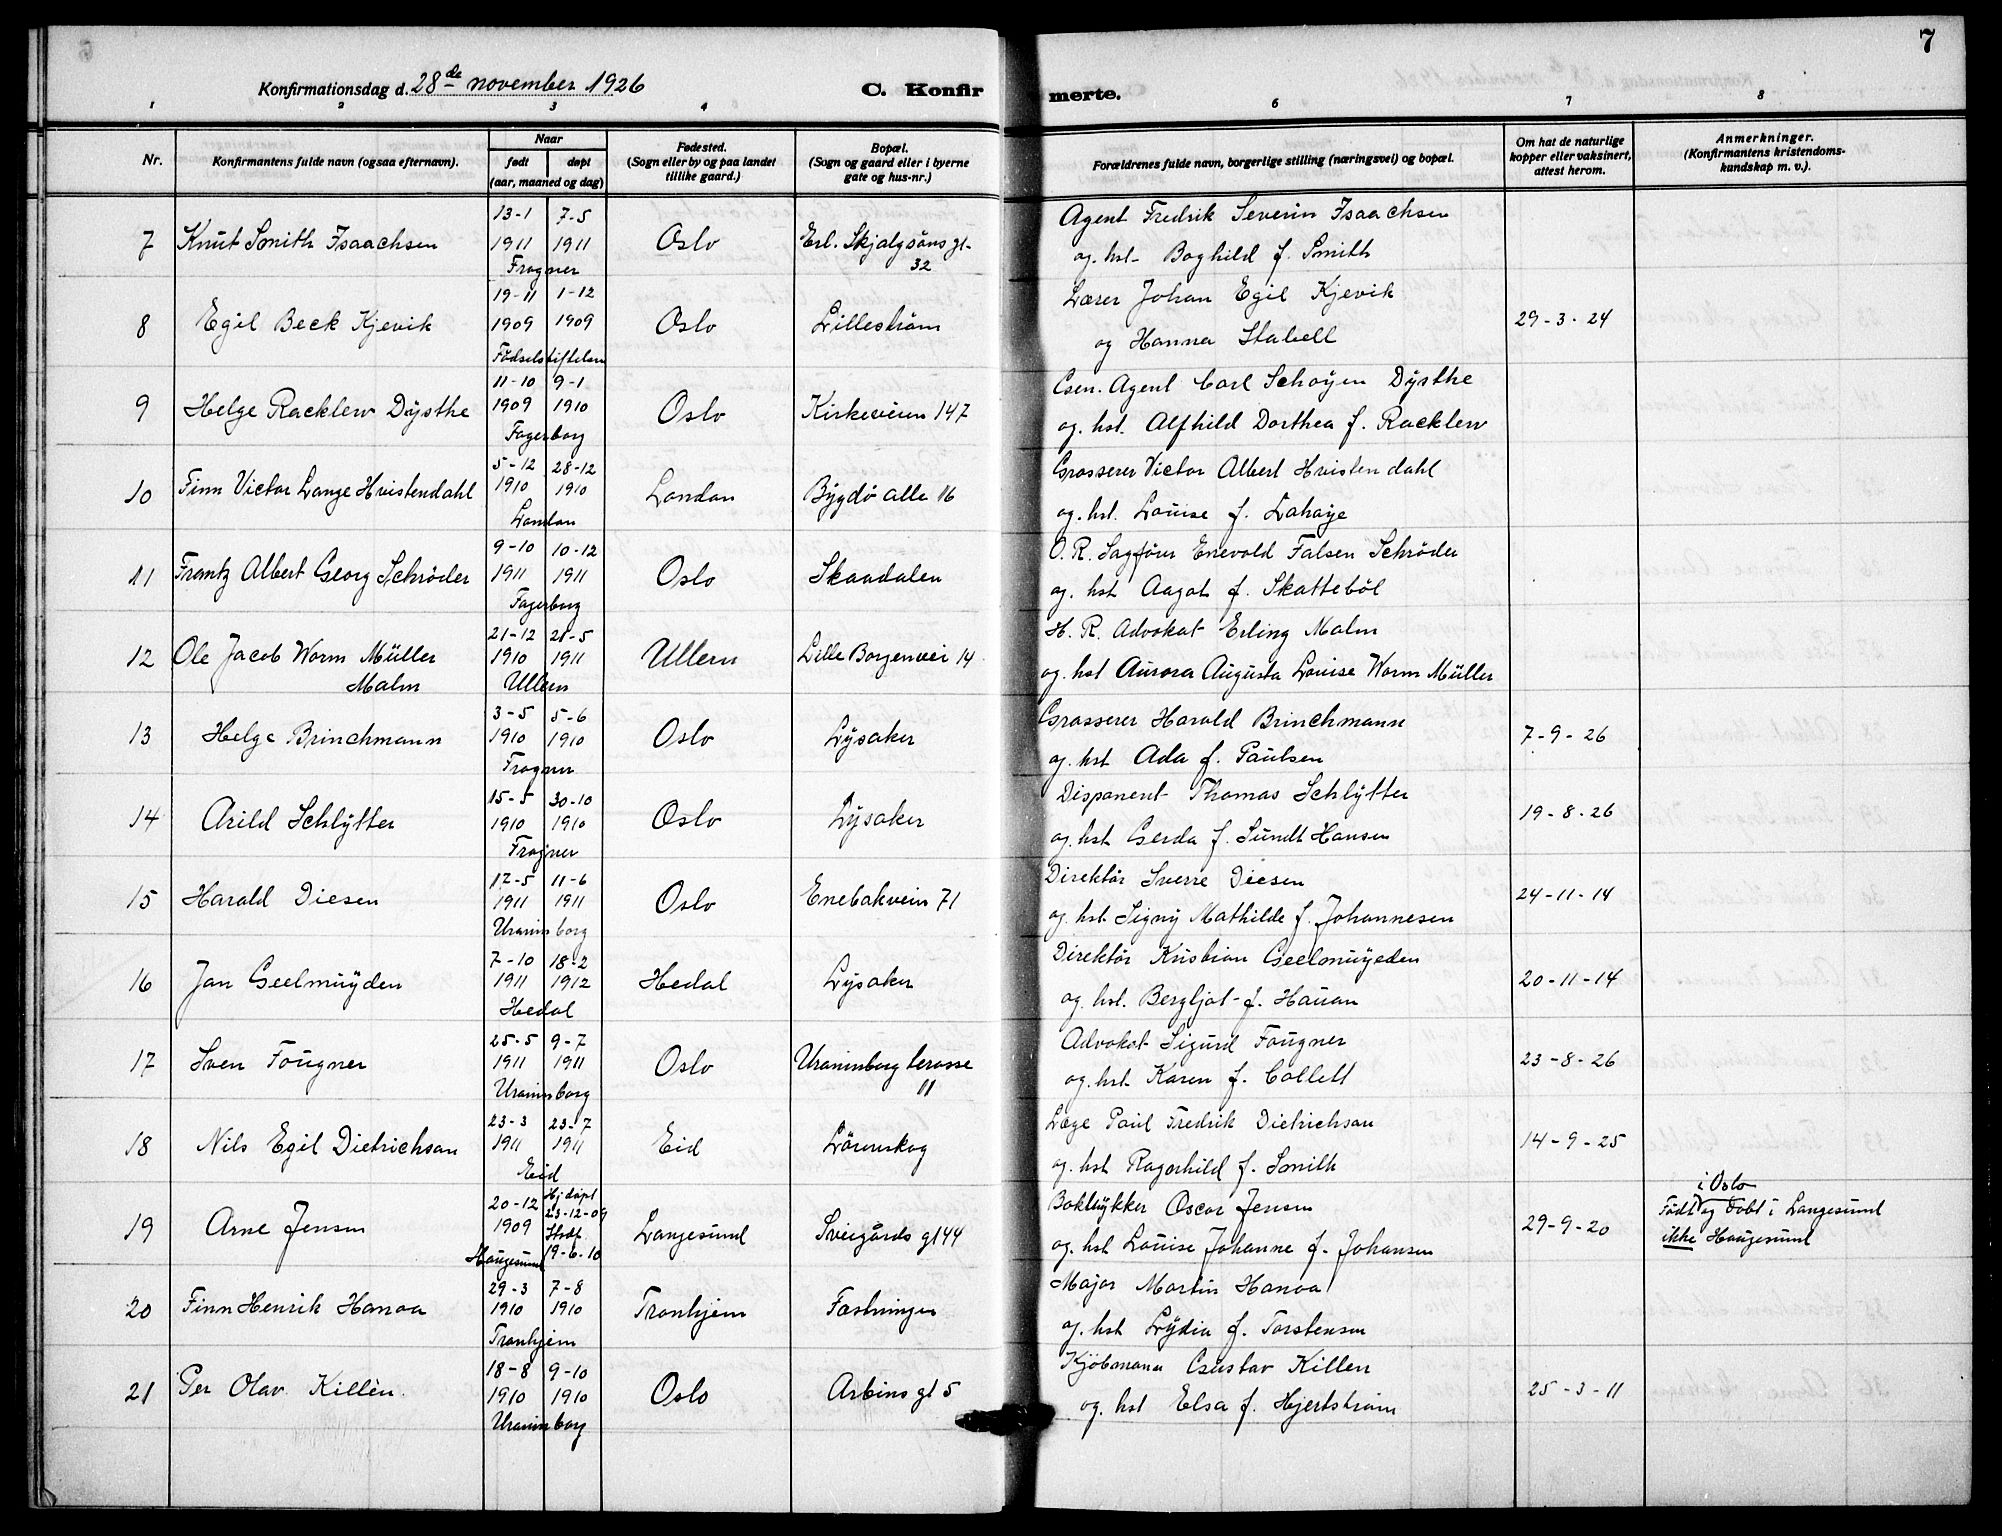 7
Konfirmationsdag d. 28de november 1926 C. Konfirmerte.
1 2 3 4 5 6 7 8
Nr. Konfirmantens fulde navn (ogsaa efternavn). Naar født døpt (aar, maaned og dag) Fødested. (Sogn eller by og paa landet tillike gaard.) Bopæl. (Sogn og gaard eller i byerne gate og hus-nr.) Forældrenes fulde navn, borgerlige stilling (næringsvei) og bopæl. Om hat de naturlige kopper eller vaksinert, attest herom. Anmerkninger. (Konfirmantens kristendomskundskap m. v.).
7 Knut Smith Isaachsen 13-1 1911 7-5 1911 Frogner Oslo Erl. Skjalgsøns gt. 32 Agent Fredrik Severin Isaachsen
og. hst. Boghild f. Smith
8 Egil Beck Kjevik 19-11 1909 1-12 1909 Fødselstiftelsen Oslo Lillestrøm Lærer Johan Egil Kjevik 29-3-24
og Hanna Stabell
9 Helge Racklew Dysthe 11-10 1909 9-1 1910 Fagerborg Oslo Kirkeveien 147 Agent Carl Schøyen Dysthe
og. hst. Alfhild Dorthea f. Racklew
10 Finn Victor Lange Hvistendahl 5-12 1910 28-12 1910 London London Bygdø alle 16 Grosserer Victor Albert Hvistendahl
og. hst. Louise f. Lahaye
11 Frantz Albert Georg Schrøder 9-10 1911 10-12 1911 Fagerborg Oslo Skaadalen O. R. Sagfører Enevold Falsen Schrøder
og. hst Aagot f. Skattebøl
12 Ole Jacob Worm Müller Malm 21-12 1910 21-5 1911 Ullern Ullern Lille Borgenvei 14 H. R. Advokat Erling Malm
og. hst Aurora Augusta Louise Worm Müller
13 Helge Brinchmann 3-5 1910 5-6 1910 Frogner Oslo Lysaker Grosserer Harald Brinchmann 7-9-26
og. hst Ada f. Paulsen
14 Arild Schlytter 15-5 1910 30-10 1910 Frogner Oslo Lysaker Disponent Thomas Schlytter 19-8-26
og. hst Gerda f. Sundt Hansen
15 Harald Diesen 17-5 1911 11-6 1911 Uranienborg Oslo Enebakvein 71 Direktør Sverre Diesen 24-11-14
og. hst. Signy Mathilde f. Johannesen
16 Jan Geelmuyden 7-10 1911 18-2 1912 Hedal Hedal Lysaker Direktør Kristian Geelmuyeden 20-11-14
og. hst. Bergljot f. Hauan
17 Sven Fougner 25-5 1911 9-7 1911 Uranienborg Oslo Uranienborg terasse 11 Advokat Sigurd Fougner 23-8-26
og. hst. Karen f. Collett
18 Nils Egil Dietrichson 23-3 1911 23-7 1911 Eid Eid Lørenskog Læge Paul Fredrik Dietrichson 14-9-25
og. hst Ragnhild f. Smith
19 Arne Jensen 20-12 1909 Hj.døpt 23-12-09 Stadf. 19-6-10 Haugesund Langesund Sveigårds gt 44 Boktrykker Oscar Jensen 29-9-20 Født i Oslo og døbt i Langesund
og. hst Louise Johanne f. Johansen ikke Haugesund
20 Finn Henrik Hanoa 29-3 1910 7-8 1910 Tronhjem Tronhjem Fæstningen Major Martin Hanoa
og. hst Lydia f. Torstensen
21 Per Olav Killèn. 18-8 1910 9-10 1910 Uranienborg Oslo Arbins gt 5 Kjøbmann Gustav Killen 25-3-11
og. hst Elsa f. Hjertstrøm